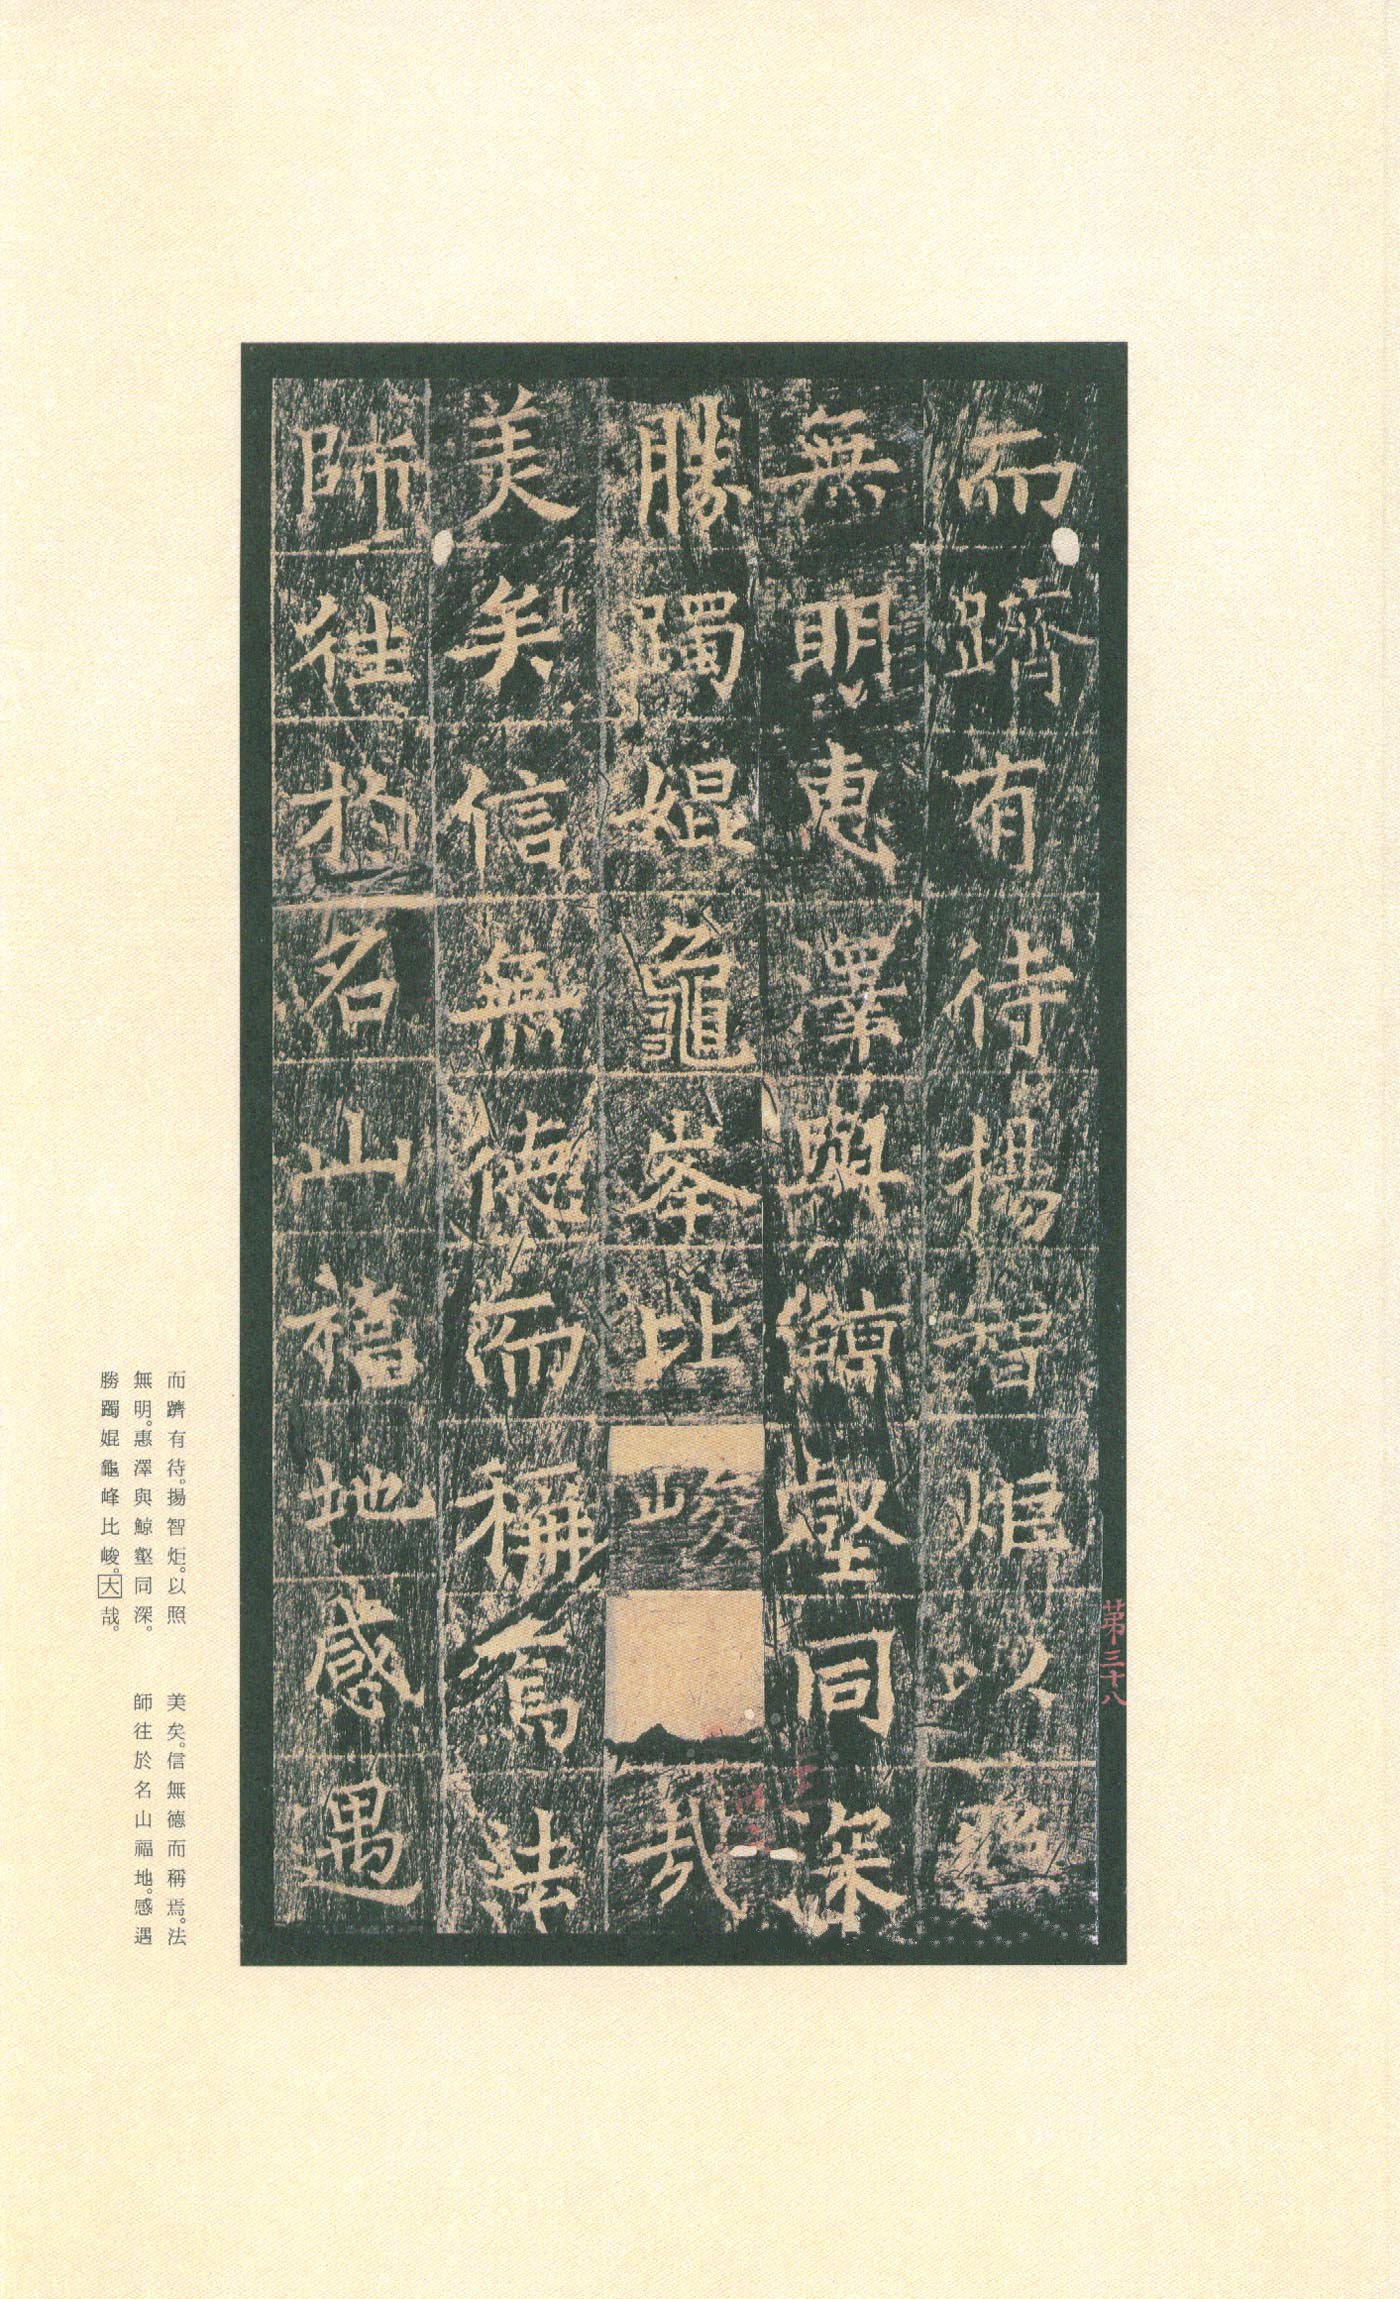 而躋有待揚智炬以照
無明惠澤與鯨壑同深
勝躅婫龜峯比峻哉
美矣信無德而稱焉法
師往於名山福地感遇
第三十八
而躋有待。揚智炬。以照
無明。惠澤與鯨壑同深。
勝躅婫龜峰比峻。大哉。
美矣。信無德而稱焉。法
師往於名山福地。感遇